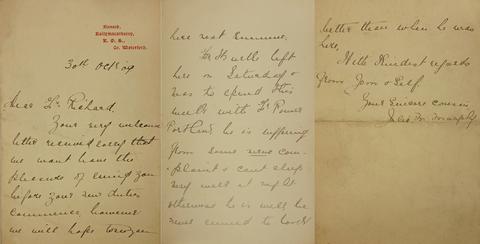 Ballymacarberry,
R. O. S.,
Co. Waterford.
30th Oct 09
Dear Fr. Richard.
Your very welcome
letter received sorry that
we wont have the
pleasure of seeing you
before your new duties
commence, however
we will hope to see you
here next summer.
left
here on Saturday &
was to spend this
week with Fr. Power
Portlaw, he is suffering
from some nerve com-
plaint & cant sleep
very well at night
otherwise he is well he
never seemed to look
better than when he was
here,
With Kindest regards
from Jom & Self
Your Sincere cousin